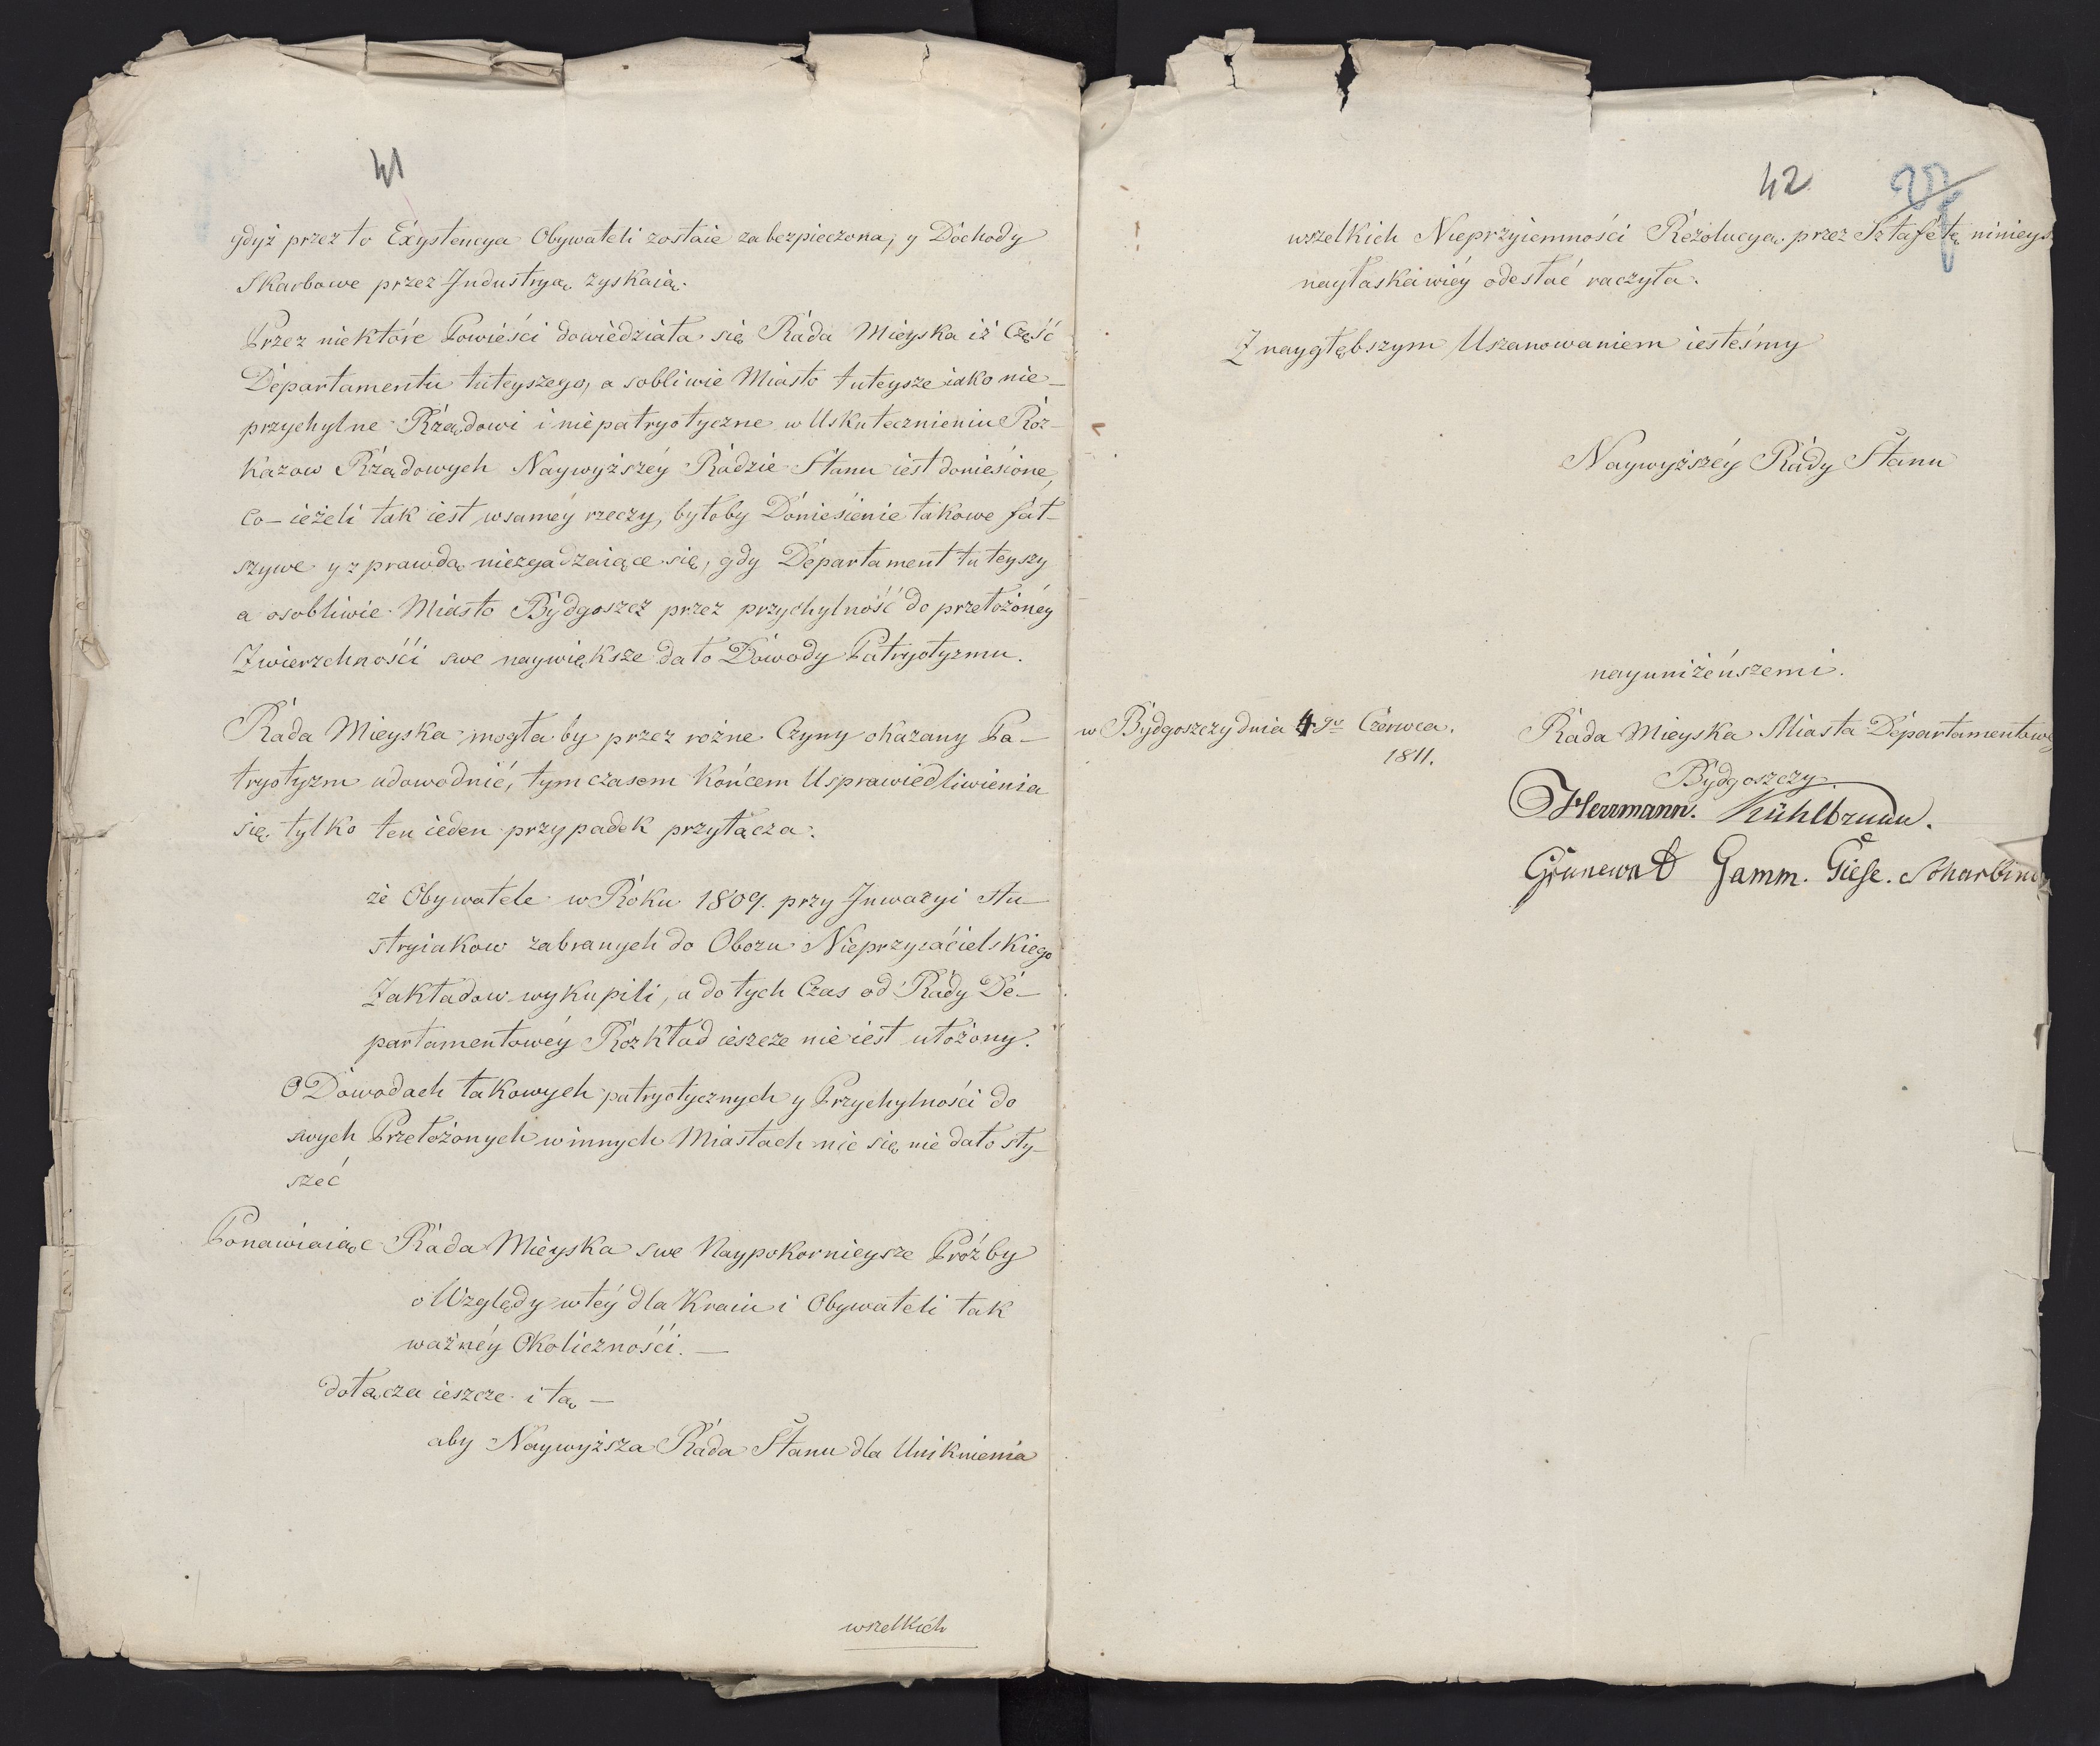 41
gdyż przez to Exystencya Obywateli zostaie zabezpieczona, y Dochody
Skarbowe przez Industryą zyskaią.
Przez niektóre Powieści dowiedziała się Rada Mieyska iż Część
Departamentu tuteyszego, a sobliwie Miasto tuteysze iako nie-
przychylne Rządowi i niepatryotyczne w Uskutecznieniu Roz-
kazow Rządowych Naywyższéy Radzie Stanu iest doniesióne,
co - ieżeli tak iest wsaméy rzeczy, byłoby Doniesienie takowe fał-
szywe y z prawdą niezgadzaiące się, gdy Departament tuteyszy
a osobliwie Miasto Bydgoszcz przez przychylność do przełożonéy
Zwierzchności swe naywiększe dało Dowody Patryotyzmu.
Rada Mieyska mogła by przez rożne Czyny okazany Pa-
tryotyzm udowodnić, tymczasem Końcem Usprawiedliwienia
się tylko ten ieden przypadek przyłącza:
że Obywatele w Roku 1809. przy Inwazyi Au-
stryiakow zabranych do Obozu Nieprzyiacielskiego
Zakładow wykupili, a do tych Czas od Rady De-
partamentowéy Rozkład ieszcze nie iest ułożony.
O Dowodach takowych patryotycznych y Przychylności do
swych Przełożonych w innych Miastach nic się nie dało sły-
szeć
Ponawiaiąc Rada Mieyska swe Naypokornieysze Proźby
o Względy w téy dla Kraiu i Obywateli tak
ważnéy Okoliczności. -
dołącza ieszcze i tą -
aby Naywyższa Rada Stanu dla Uniknienia
wszelkich
42
wszelkich Nieprzyiemności Rezolucyą przez Sztafetę ninieys
nayłaskawiéy odesłać raczyła.
Z naygłębszym Uszanowaniem iesteśmy
Naywyższéy Rady Stanu
nayuniżeńszemi.
w Bydgoszczy dnia 4go Czerwca.
1811.
Rada Mieyska Miasta Departamentowe
Bydgoszczy
Herrmann. Kühlbrunn.
Grunewald Gamm. Giese.